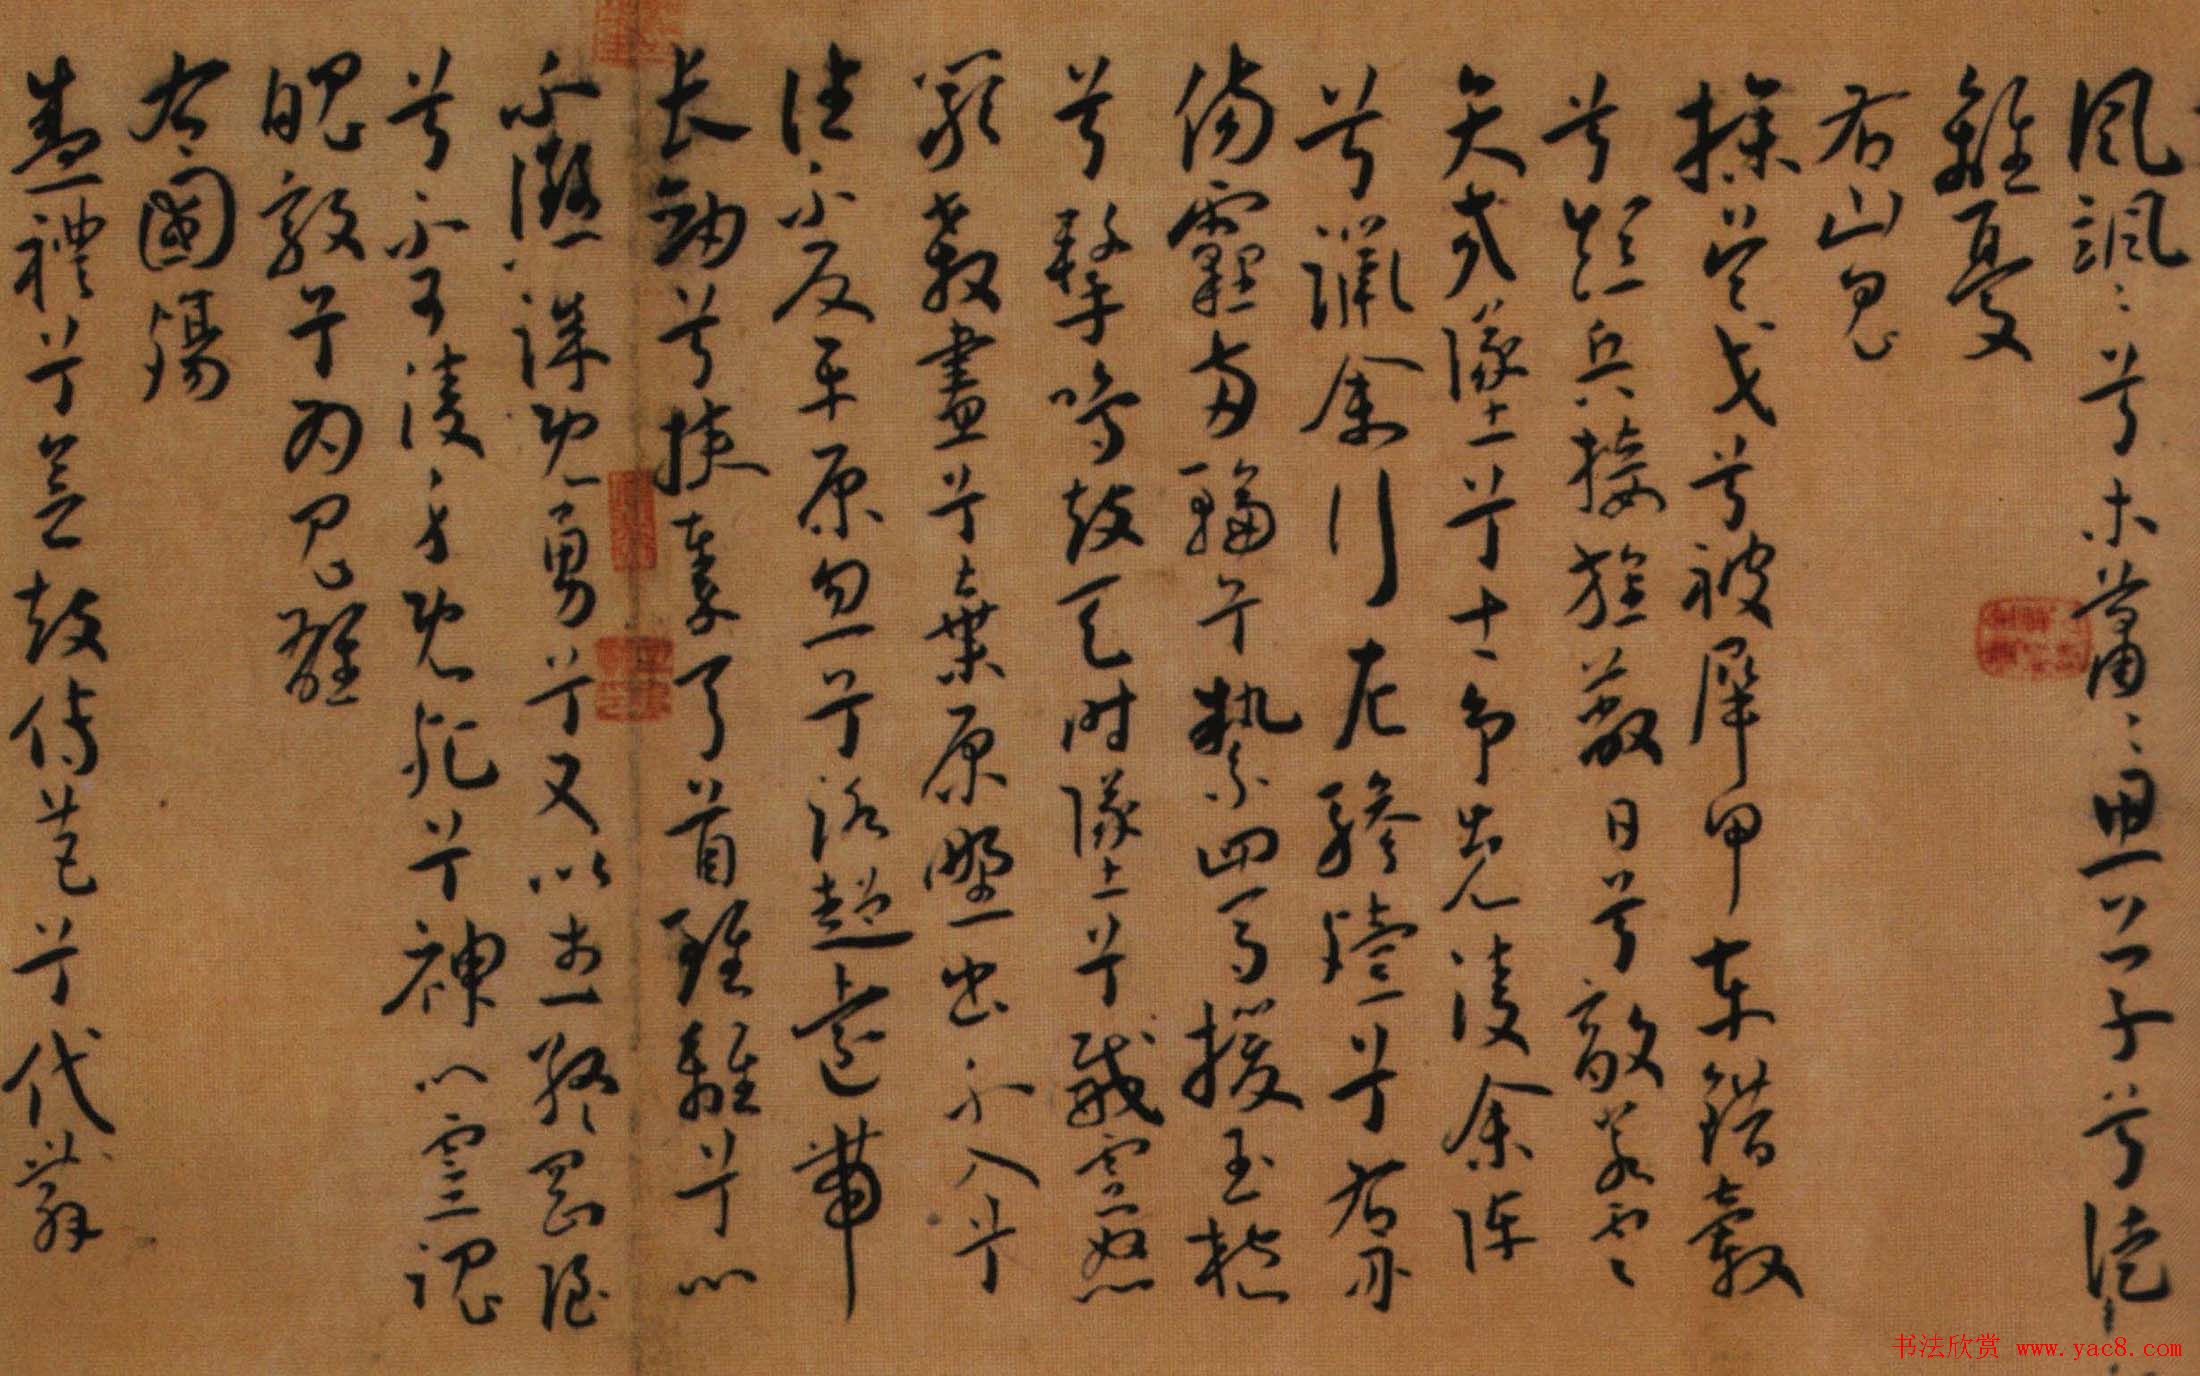 風颯〻兮木蕭〻思公子兮徒
離憂
右山鬼
操吳戈兮被犀甲車錯轂
兮短兵接旌蔽日兮敵若雲
矢交墜兮士爭先凌余陣
兮躐余行左驂殪兮右刃
傷霾兩輪兮縶四馬援玉枹
兮擊鳴鼓天時墜兮威靈怒
嚴殺盡兮棄原壄出不入兮
往不反平原忽兮路超遠帶
長劍兮挾秦弓首雖離兮心
不懲誠既勇兮又以武終剛強
兮不可凌身既死兮神以靈魂
魄毅兮為鬼雄
右國殤
盛禮兮會鼓傳芭兮代舞
书法欣赏 www.yac8.com